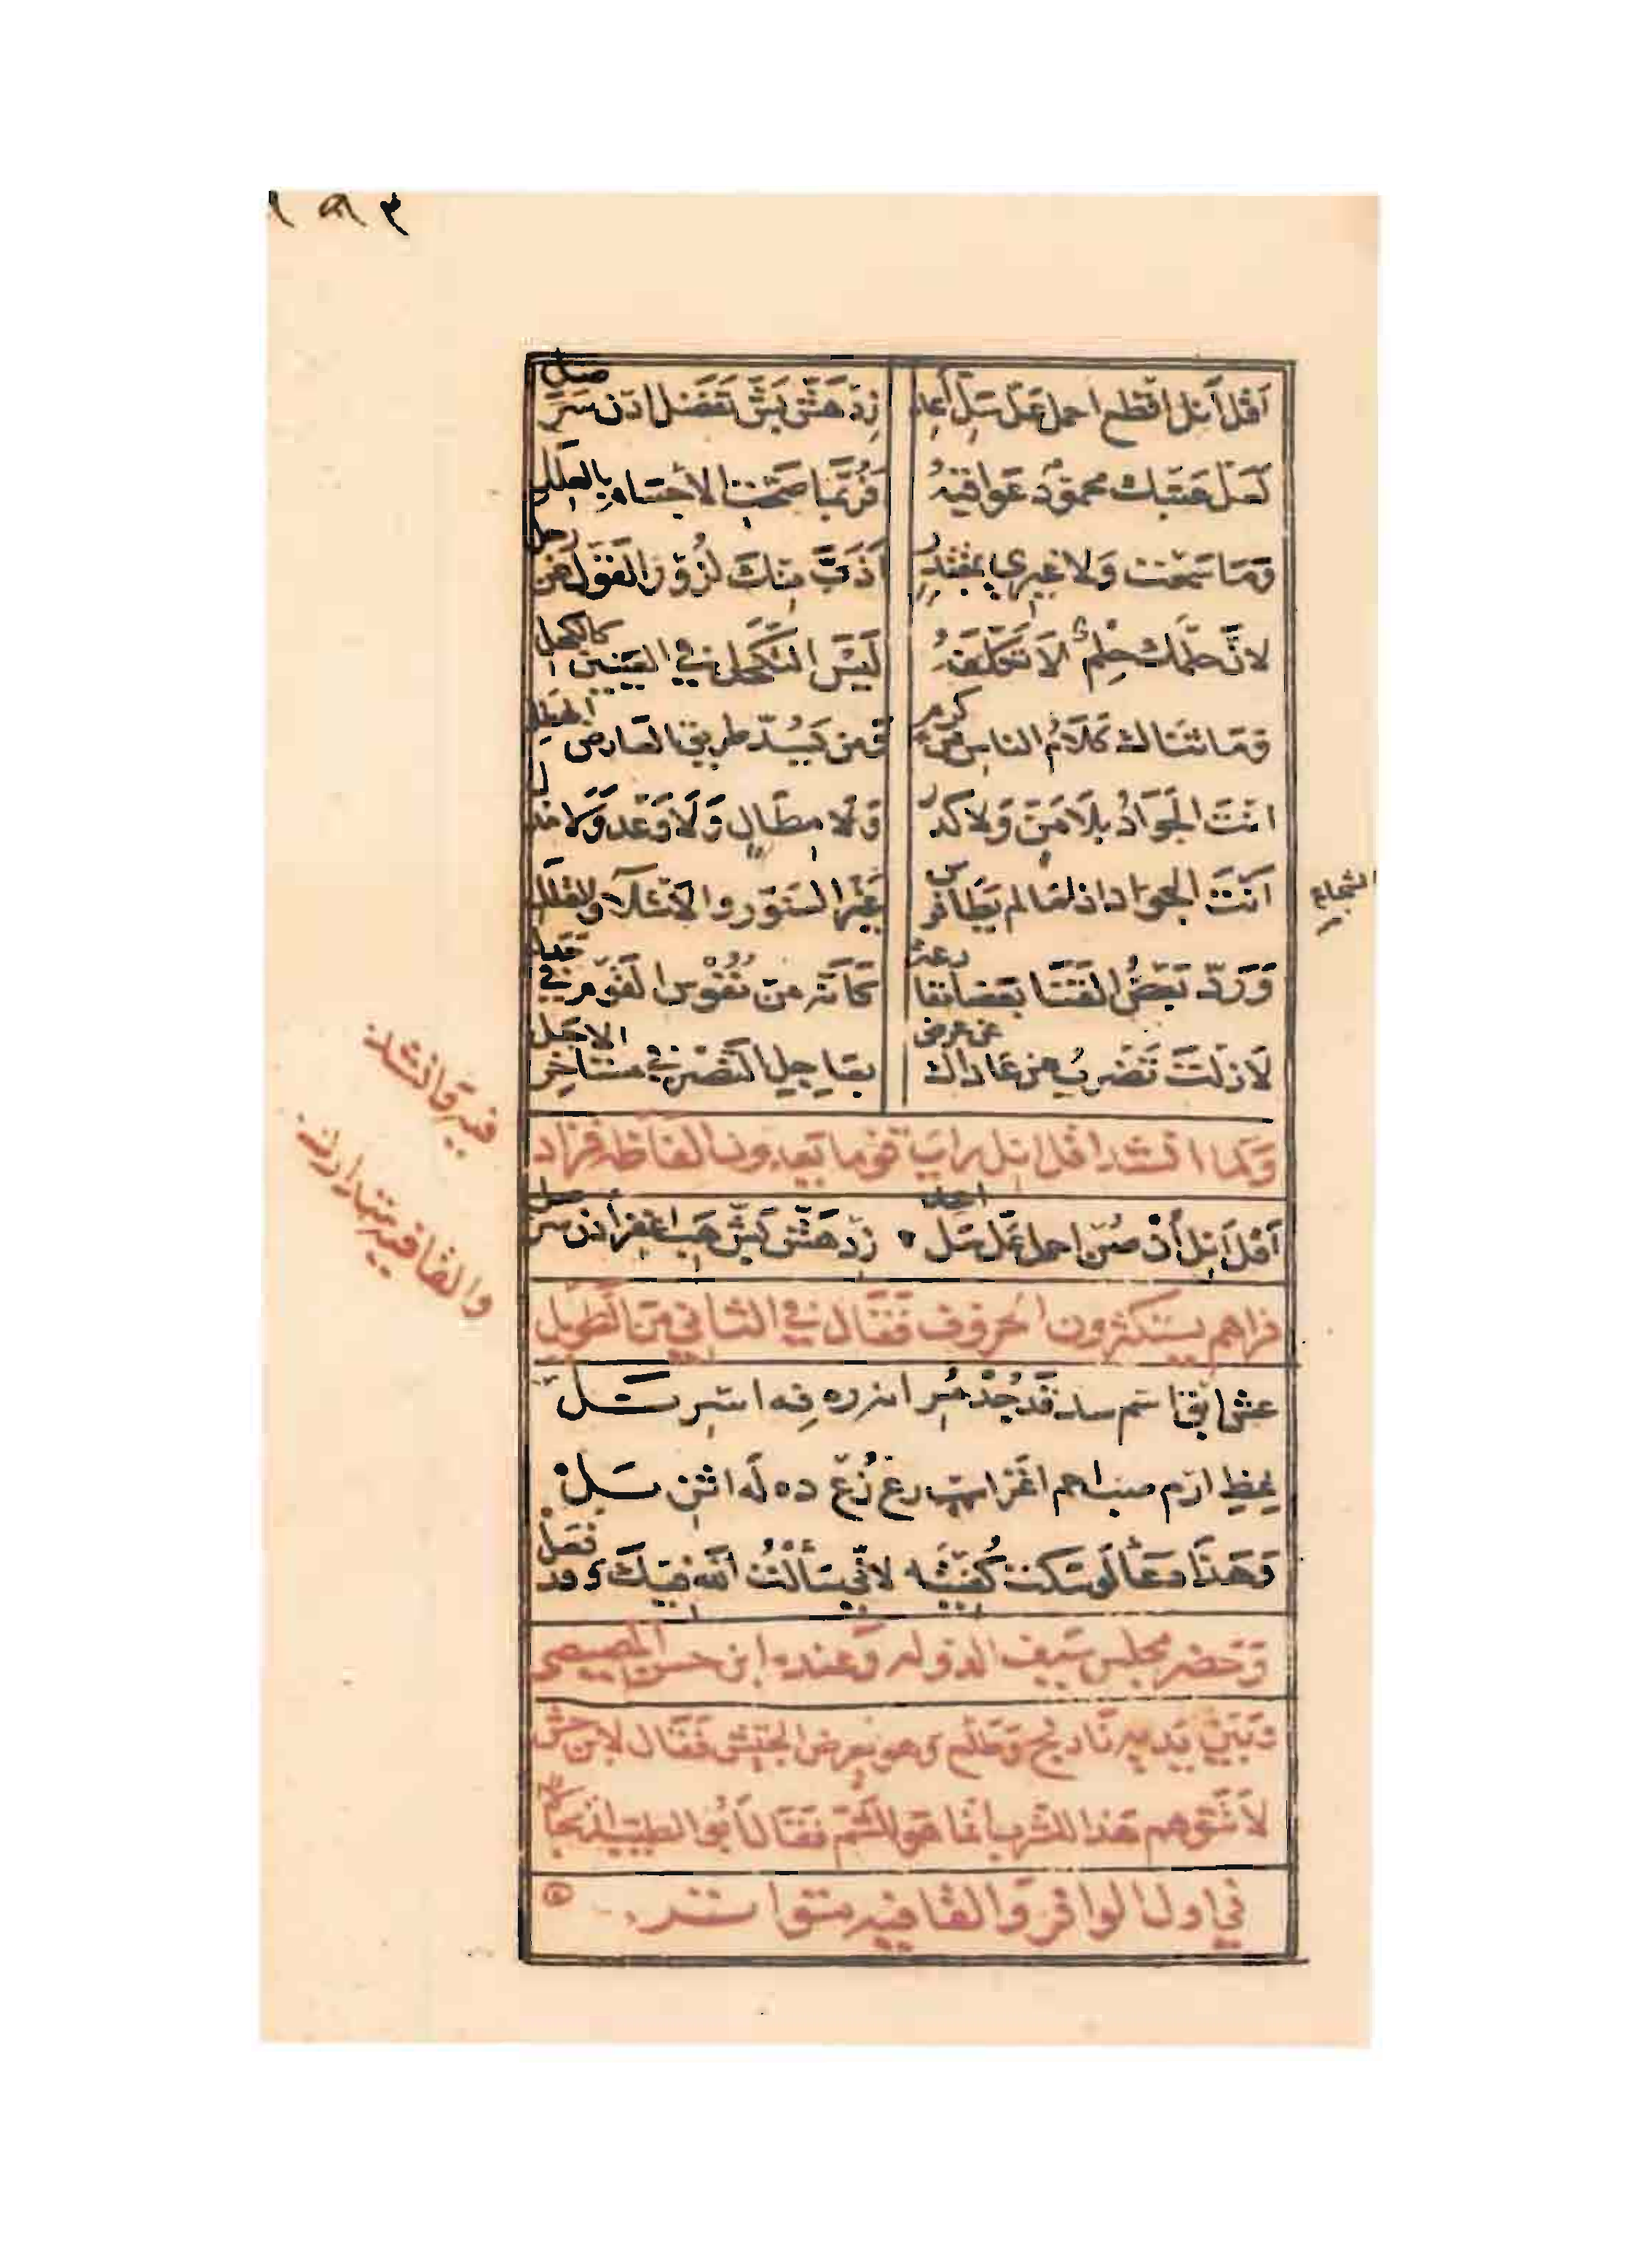 ١٨٣
اَقِل اَنِل اقطِع احمل عَلِّ سَلِّ اَعِد زِد هَشَّ بَشَّ تَفَضَّل ادنِ سُرَّ صِل
لَعَلَّ عَتبَك محمودٌ عَواقبُه فَرُبَّما صَحَّت الاَجسام بِالعِلَلِ
وَمَا سَمِعت وَلا غيري بمُقتَدِر اَذَبَّ مِنكَ لزُورِ القَولِ عَن رجل
لانَّ حلمَك حِلمٌ لاَ تَكَلَّفَهُ لَيسَ التَّكَحُّل في العَينَين كالكحل
وَمَا ثَنَاك كَلاَمُ الناسِ عَن كرم وَمَن يَسُدّ طَريق العَارض الهَطِلِ
انتَ الجَوَادُ بِلاَ مَنٍّ وَلا كدر وَلا مِطَالٍ وَلَا وَعدٍ وَلا مذل
اَنتَ الجوَاد اذا مَا لم يَطَا فرس غَيرَ السَنَوَّر والاَشلَاء والقُلَلِ
الشجاع
وَرَدَّ بَعضُ القَنَا بَعضا مقارعة كَاَنَّه مِن نُفُوسِ القَوم في جدل
لاَ زلتَ تَضرب مَن عَاداك عن عرض بعَاجِل النَّصر في مستَاخِر الاجَل
وَلما انشد اقل انل رايَ قوما يَعدون الفاظه فزاد
فيه وَانشد
اَقل اَنِل أُن صُن احمل عَلِّ سَلِّ اعد زِد هَشَّ بَشَّ هَب اغفِر أدنِ سُرَّ صل
والقافيه متدارك
فراهم يستكثرون الحروف فَقَال في الثاني مِن الطَّوِيل
عش ابق اسم سد قُد جُد مُر انه ره فِه اسر نَل
غِظِ ارم صب احم اغز اسب رع زُع ده لَه اثنِ نَل
وَهَذا دعَاٌ لَو سَكت كُفيتَه لاني سَأَلتُ الله فيكَ وقد فَعَل
وَحضر مجلس سَيف الدوله وَعنده ابن حسن المصيصى
وَبَينَ يَديه نَارنج وَطَلع وهو يعرض الجَيش فَقَال لابن حبش
لاَ تَتَوهم هَذا للشرب انما هَو للشَّم فقَال اَبُو الطيب ارتجالا
في اول الوافر وَالقافيه متواتر